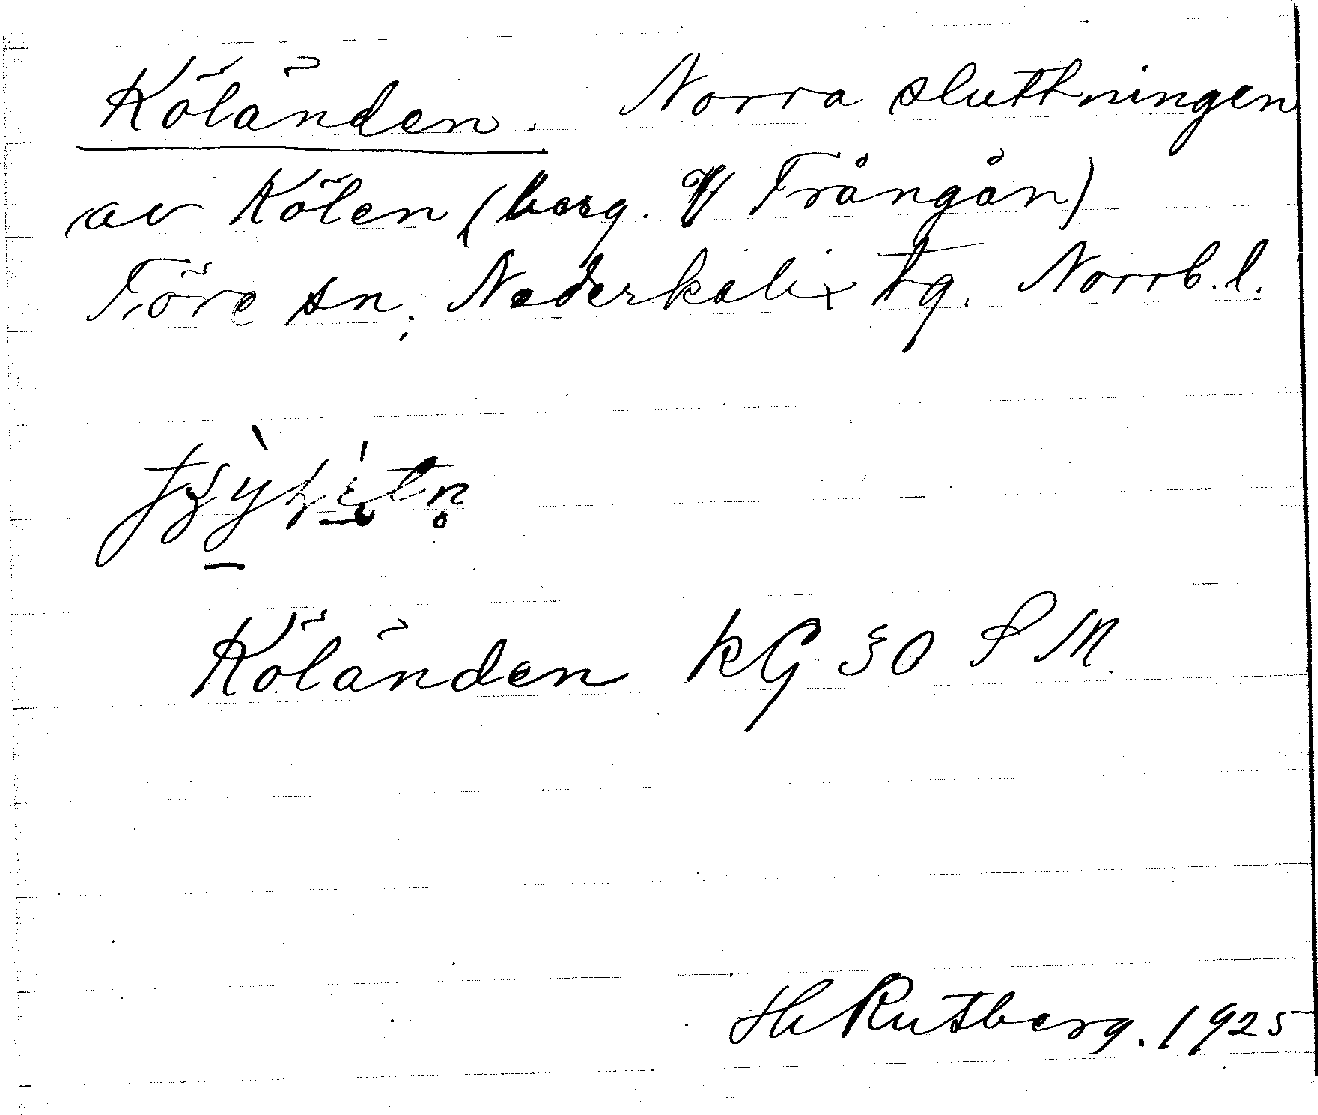 Köländen. Norra sluttningen
av Kölen (berg. V Trångån)
Töre sn, Nederkalix tg. Norrb. l.
Köländen kG 30 SM.
H Rutberg. 1925